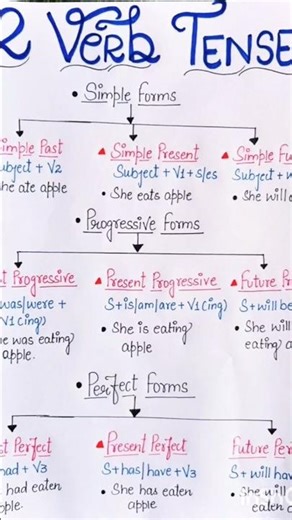 2 Verb Tense
• Simple Forms
Simple Past ▲ Simple Present ▲ Simple Fu
ubject + V2 Subject + V1 + s/es Subject + w
he ate apple • She eats apple • She will e
• Progressive Forms
t Progressive ▲ Present Progressive ▲ Future Pr
was/were + S+is/am/are + V1(ing) S+will be
V1(ing) • She is eating • She will
e was eating apple eating a
apple.
• Perfect Forms
st Perfect ▲ Present Perfect Future Per
had + V3 S+has/have + V3 S+ will hav
had eaten • She has eaten • She will
ple. apple eaten